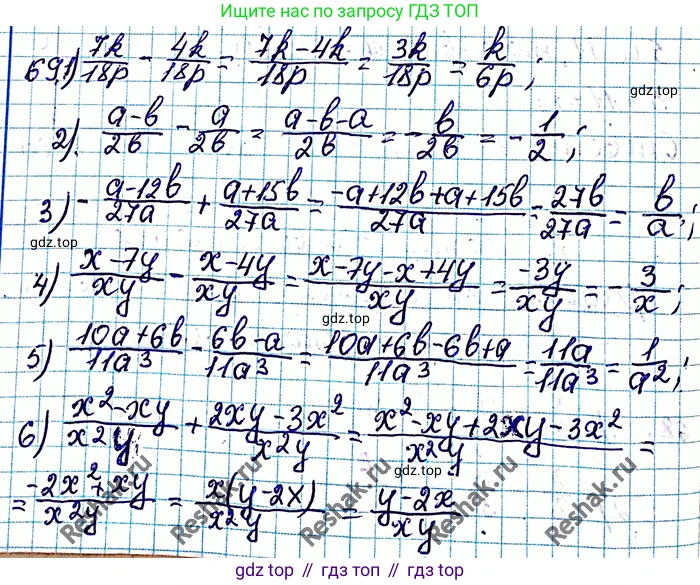 Ищите нас по запросу ГДЗ ТОП
69.1) 7k/18p - 4k/18p = (7k-4k)/18p = 3k/18p = k/6p;
gdz.top
2). (a-b)/2b - a/2b = (a-b-a)/2b = -b/2b = -1/2;
3) -(a-12b)/27a + (a+15b)/27a = (-a+12b+a+15b)/27a = 27b/27a = b/a;
gdz.top
gdz.top
4) (x-7y)/xy - (x-4y)/xy = (x-7y-x+4y)/xy = -3y/xy = -3/x;
gdz.top
5) (10a+6b)/11a³ - (6b-a)/11a³ = (10a+6b-6b+a)/11a³ = 11a/11a³ = 1/a²;
6) (x²-xy)/x²y + (2xy-3x²)/x²y = (x²-xy+2xy-3x²)/x²y =
gdz.top
= (-2x²+xy)/x²y = x(y-2x)/x²y = (y-2x)/xy.
Reshak.ru
Reshak.ru
Reshak.ru
Reshak.ru
gdz.top // гдз.топ // gdz.top